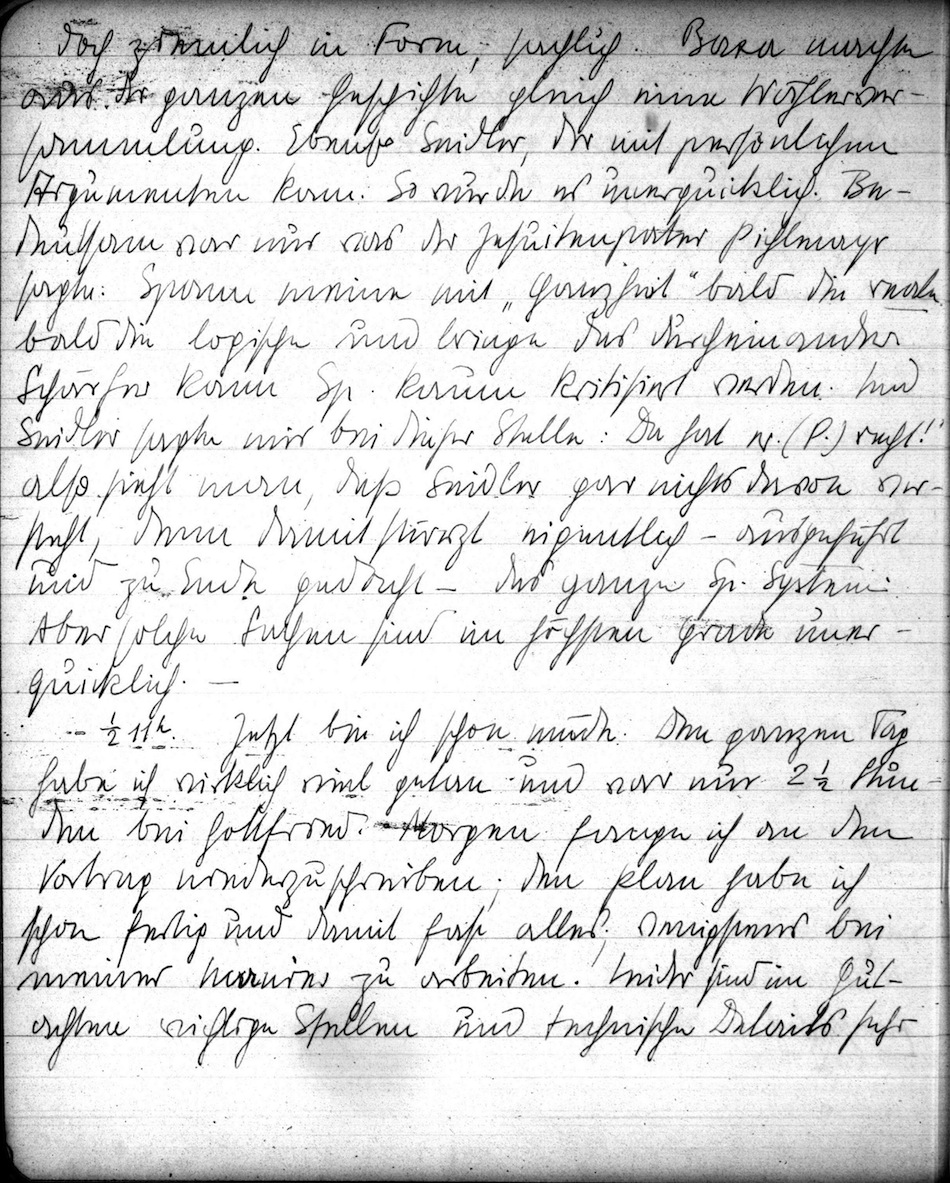 doch ziemlich in Form, sachlich. Baxa machte
aus der ganzen Geschichte gleich eine Wählerver-
sammlung. Ebenso Seidler, der mit persönlichen
Argumenten kam. So wurde es unerquicklich. Be-
deutsam war nur was der Jesuitenpater Pichlmayr
sagte: Spann meine mit „Ganzheit“ bald die reale
bald die logische und bringe das durcheinander
Schärfer kann Sp. kaum kritisiert werden. Und
Seidler sagte mir bei dieser Stelle: Da hat er (P.) recht!"
also sieht man, daß Seidler gar nichts davon ver-
steht, denn damit stürzt eigentlich – ausgeführt
und zu Ende gedacht – das ganze Sp. System.
Aber solche Sachen sind im höchsten Grade uner-
quicklich. —
- ½ 11h. Jetzt bin ich schon müde. Den ganzen Tag
habe ich wirklich viel getan und war nur 2 ½ Stun-
den bei Gottfried. Morgen fange ich an den
Vortrag niederzuschreiben; den Plan habe ich
schon fertig und damit fast alles, wenigstens bei
meiner Manier zu arbeiten. Leider sind im Gut-
achten wichtige Stellen und technische Details sehr